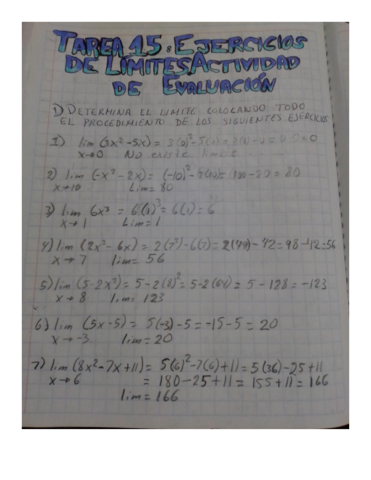 TAREA 1.5. EJERCICIOS
DE LÍMITES, ACTIVIDAD
DE EVALUACIÓN
1) DETERMINA EL LIMITE COLOCANDO TODO
EL PROCEDIMIENTO DE LOS SIGUIENTES EJERCICIOS
lim (3x²-5x) = 3(0)²-5(0)
x→0 No existe
2) lim (-x²-2x) = (-10)² = 100-20 = 80
x→10 Lim = 80
3) lim 6x³ = 6(1)³ = 6(1) = 6
x→1 Lim = 1
4) lim (2x²-6x) = 2(7²)-6(7) = 2(49)-42 = 98-42=56
x→7 Lim = 56
5) lim (5-2x²) = 5-2(8)² = 5-2(64) = 5-128 = -123
x→8 Lim = 123
6) lim (5x-5) = 5(-3)-5 = -15-5 = 20
x→-3 lim = 20
7) lim (8x²-7x+11) = 5(6)²-7(6)+11 = 5(36)-25+11
x→6 = 180-25+11 = 155+11 = 166
lim = 166